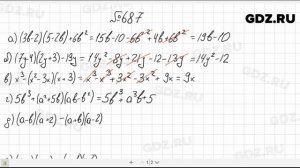 GDZ.RU
№687
а) (3b-2)(5-2b)+6b² = 15b-10-6b²+4b+6b² = 19b-10
д) (7y-4)(2y+3)-13y = 14y²-8y+21y-12-13y = 14y²-12
в) x³-(x²-3x)(x+3) = x³-x³+3x²-3x²+9x = 9x
г) 5b³+(a²+5b)(ab-b²) = 5b³+a³b+5
д) (a-b)(a+2)-(a+b)(a-2)
GDZ.RU